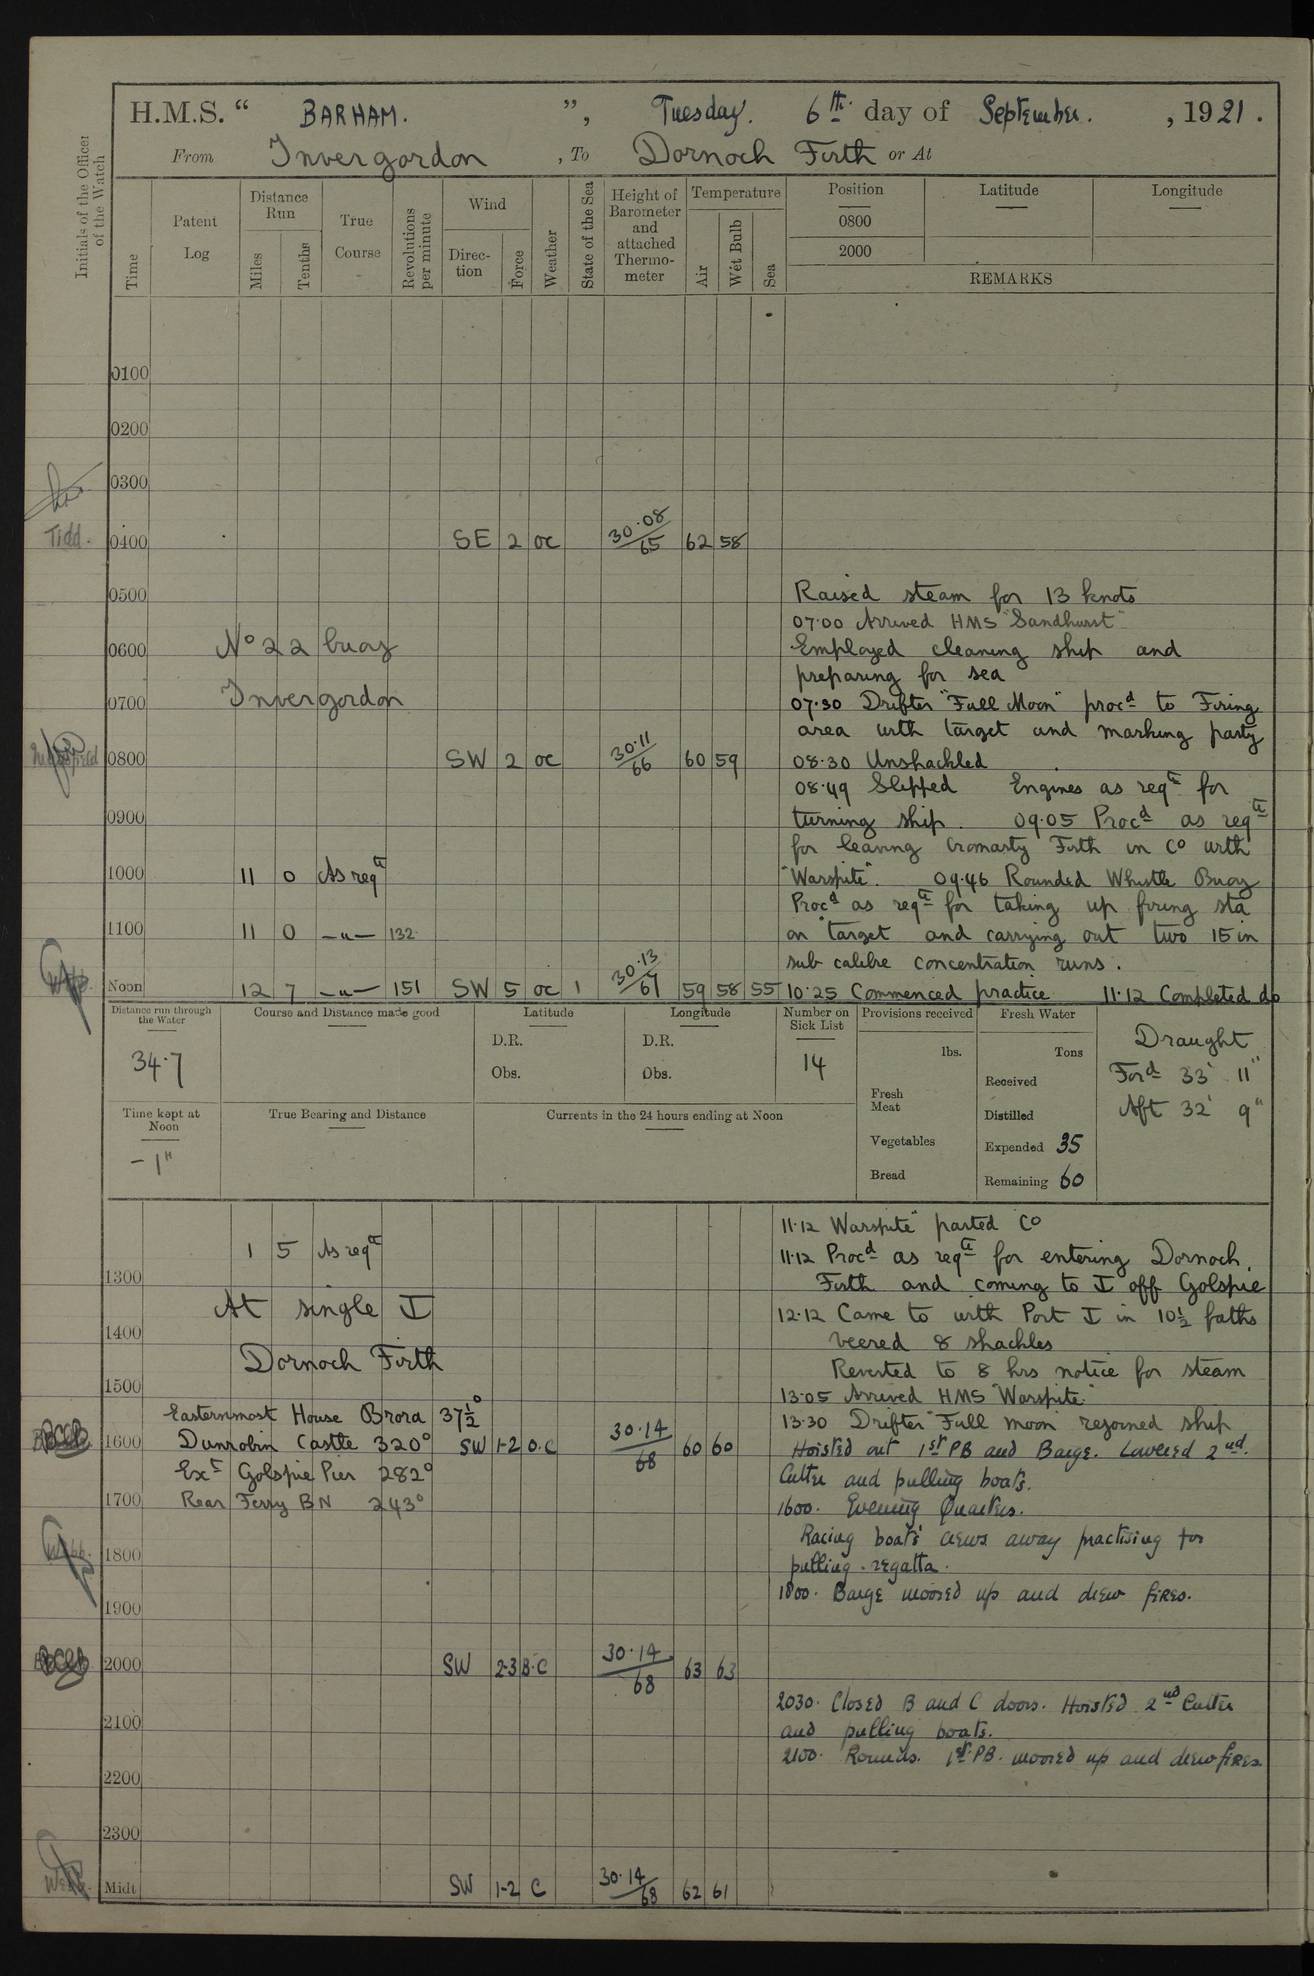 H.M.S. “ BARHAM. ”, Tuesday. 6th. day of September. , 1921.
From Invergordon , To Dornoch Firth or At
Initials of the Officer of the Watch
Time
Patent Log
Distance Run
Miles
Tenths
True Course
Revolutions per minute
Wind
Direc-tion
Force
Weather
State of the Sea
Height of Barometer and attached Thermo-meter
Temperature
Air
Wet Bulb
Sea
Position Latitude Longitude
0800
2000
REMARKS
0100
0200
0300
Tidd.
0400 SE 2 oc 30.08/65 62 58
0500 Raised steam for 13 knots
07.00 Arrived HMS "Sandhurst"
0600 No 22 buoy Employed cleaning ship and
preparing for sea
0700 Invergordon 07.30 Drifter "Full Moon" procd to Firing
area with target and marking party
0800 SW 2 oc 30.11/66 60 59 08.30 Unshackled
08.49 Slipped Engines as reqte for
0900 turning ship. 09.05 Procd as reqte
for leaving Cromarty Firth in Co with
1000 11 0 As reqte "Warspite". 09.46 Rounded Whistle Buoy
Procd as reqte for taking up firing sta
1100 11 0 —"— 132 on target and carrying out two 15 in
sub calibre concentration runs.
Noon 12 7 —"— 151 SW 5 oc 1 30.13/67 59 58 55 10.25 Commenced practice 11.12 Completed do
Distance run through the Water
34.7
Course and Distance made good
Latitude
D.R.
Obs.
Longitude
D.R.
Obs.
Number on Sick List
14
Provisions received
lbs.
Fresh Meat
Vegetables
Bread
Fresh Water
Tons
Received
Distilled
Expended 35
Remaining 60
Draught
Ford 33' 11"
Aft 32' 9"
Time kept at Noon
-1"
True Bearing and Distance
Currents in the 24 hours ending at Noon
11.12 Warspite" parted Co
1 5 As reqte 11.12 Procd as reqte for entering Dornoch
1300 Firth and coming to ⚓ off Golspie
At single ⚓ 12.12 Came to with Port ⚓ in 10½ faths
1400 veered 8 shackles
Dornoch Firth Reverted to 8 hrs notice for steam
1500 13.05 Arrived HMS "Warspite"
Easternmost House Brora 37½° 13.30 Drifter "Full moon" rejoined ship
1600 Dunrobin Castle 320° SW 1-2 o.c 30.14/68 60 60 Hoisted out 1st PB and Barge. Lowered 2nd.
Ext Golspie Pier 282° Cutter and pulling boats.
1700 Rear Ferry BN 243° 1600. Evening Quarters.
Racing boats' crews away practising for
1800 pulling regatta.
1800. Barge moored up and drew fires.
1900
2000 SW 2-3 B.C 30.14/68 63 63
2030. Closed B and C doors. Hoisted 2nd Cutter
2100 and pulling boats.
2100. Rounds. 1st PB. moored up and drew fires.
2200
2300
Midt SW 1-2 C 30.14/68 62 61